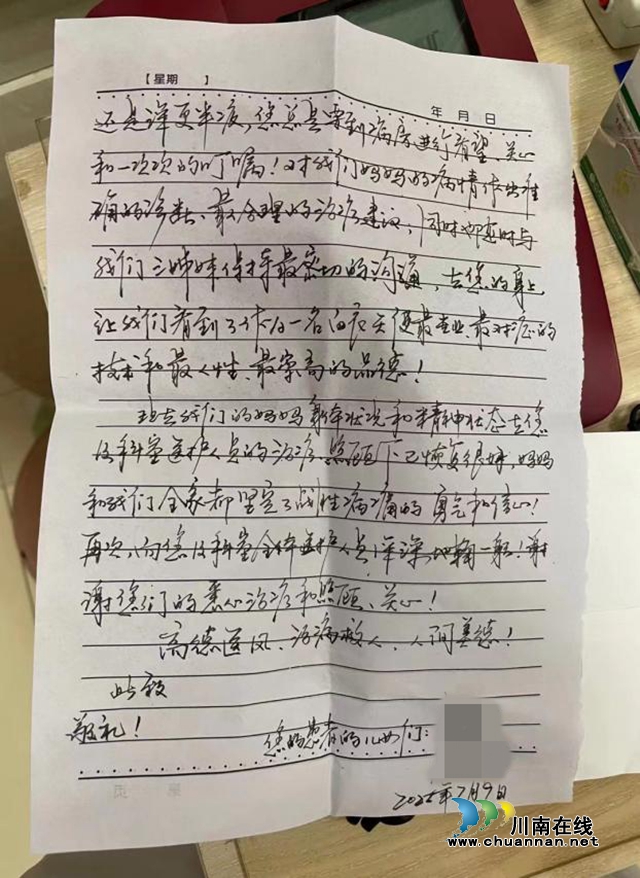 【星期 】
年 月 日
还是深更半夜,您总是要到病房进行看望、关心
和一次次的叮嘱!对我们妈妈的病情作出准
确的诊断、最合理的治疗建议,同时也随时与
我们三姊妹保持最密切的沟通,在您的身上
让我们看到了作为一名白衣天使最专业、最对症的
技术和最人性、最崇高的品德!
现在我们的妈妈身体状况和精神状态在您
及科室医护人员的治疗、照顾下已恢复很好,妈妈
和我们全家都坚定了战胜病痛的勇气和信心!
再次,向您及科室全体医护人员深深地鞠一躬!谢
谢您们的悉心治疗和照顾、关心!
高德医风、治病救人、人间美德!
此致
敬礼!
您的患者的儿女们:
2025年7月9日
川南在线
www.chuannan.net